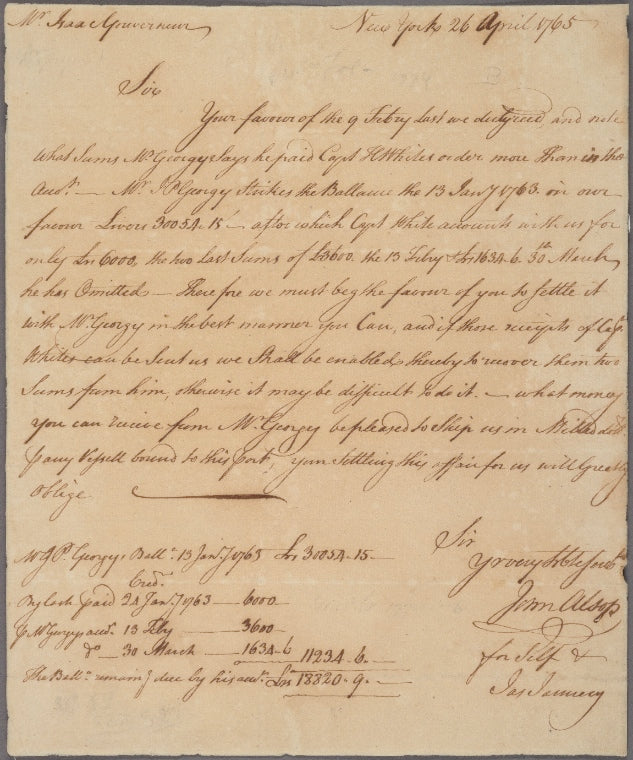 Mr. Isaac Gouverneur New York 26 April 1765
Sir
Your favour of the 9 Febry last we duly recd, and note
what Sums Mr Georgy Says he paid Capt H Whites order more than in the
Accot. — Mr. J P Georgy Strikes the Ballance the 13 Jany 1763. in our
favour Livers 30054.15 — after which Capt White accounts with us for
only Lrs 6000, the two last Sums of Lr 3600. the 13 Febry & Lrs 1634.6. 30th March
he has Omitted — Therefore we must beg the favour of you to Settle it
with Mr. Georgy in the best manner you Can, and if those receipts of Capt.
Whites can be Sent us we Shall be enabled thereby to recover them two
Sums from him, otherwise it may be difficult to do it. — what money
you can receive from Mr. Georgy be pleased to Ship us in Milled
any Vessell bound to this port, your Settling this affair for us will Greatly
Oblige
Sir
John Alsop
for Self &
Jas Jauncey
Mr J. P. Georgys Ballce. 13 Jany 1763 Lrs 30054.15 —
Credr.
By Cash paid 24 Jany 1763 — 6000
p Mr Georgys accot. 13 Feby — 3600
do — 30 March — 1634.6 11234.6. —
The Ballce. remaing due by his accot. Lrs 18820.9. —